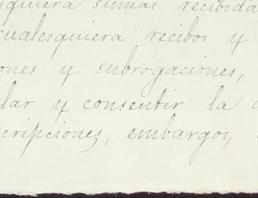 quiera sumas recibida
cualesquiera recibos y
ones y subrogaciones,
lar y consentir la c
scripciones, embargos,